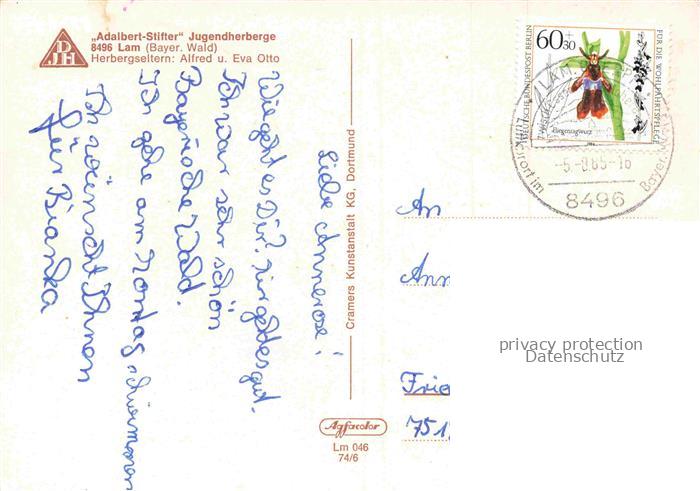 „Adalbert-Stifter" Jugendherberge
8496 Lam (Bayer. Wald)
Herbergseltern: Alfred u. Eva Otto
DJH
Liebe Annerose!
Wie geht es Dir? Mir geht es gut.
Ich war sehr schön
Bayrische Wald.
Ich gehe am Montag schwimmen
Ich wünscht Ihnen
Bianka
Cramers Kunstanstalt KG, Dortmund
Agfacolor
Lm 046
74/6
60+30
DEUTSCHE BUNDESPOST BERLIN
FÜR DIE WOHLFAHRTSPFLEGE
Fliegenragwurz
1984
LAM
85-16
8496
Kurort im
Bayer.
An
Ann
Frie
751
privacy protection
Datenschutz